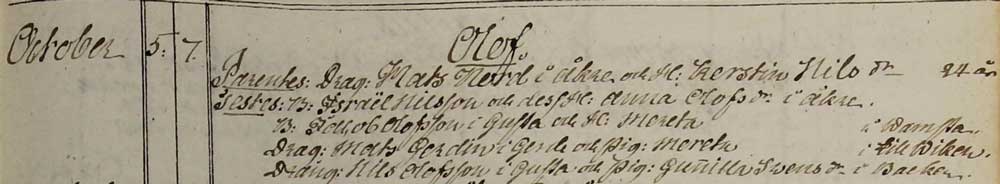 October 5. 7. Olof.
Parentes: Drag: Mats Nord i Åkre och H: Kerstin Nils dr 24 år
Testes: B: Israël Nilsson och dess H: Anna Olofs dr i Åkre.
B: Jacob Olofsson i Gussta och H: Mereta i Wamsta.
Drag: Mats Gerdin i Gerde och Pig: Mereta i Lillwiken.
Dräng: Nils Olofsson i Gussta och Pig: Gunilla Swens dr i Backen.